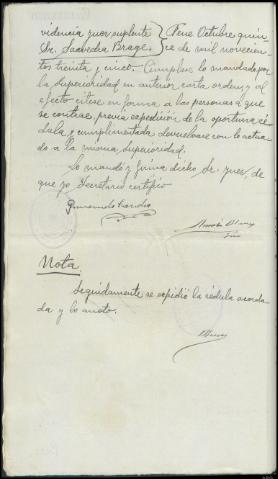 videncia juez suplente } Pene Octubre quin
Sr. Saavedra Brage. } ce de mil novecien
tos treinta y cinco. Cumplase lo mandado por
la Superioridad en anterior carta orden, y al
efecto citese en forma, a las personas a que
se contrae, previa expedición de la oportuna cé
dula, y cumplimentada devuelvase con lo actua
do a la misma Superioridad.
Lo mandó y firma dicho Sr. juez, de
que yo Secretario certifico
Nota.
Seguidamente se expidió la cédula acorda-
da y lo anoto.